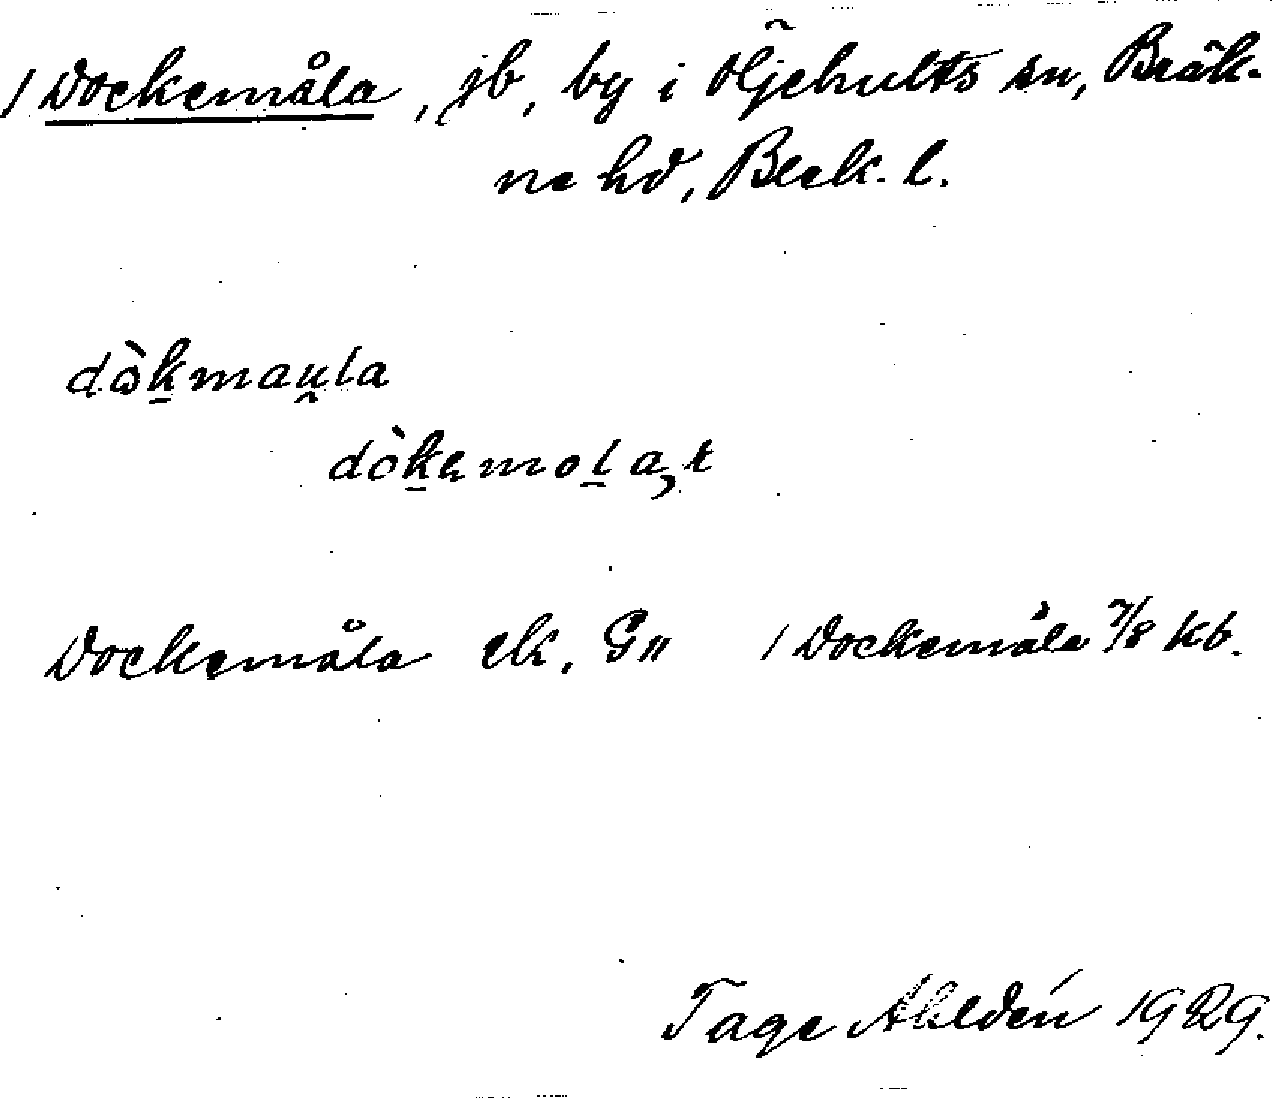 1 Dockemåla, jb, by i Öljehults sn, Bräk-
ne hd, Blek. l.
dòk̠mau̯la
dòk̠emol̠a,t
Dockemåla ek, G" 1 Dockemåla 7/8 kb.
Tage Ahldén 1929.